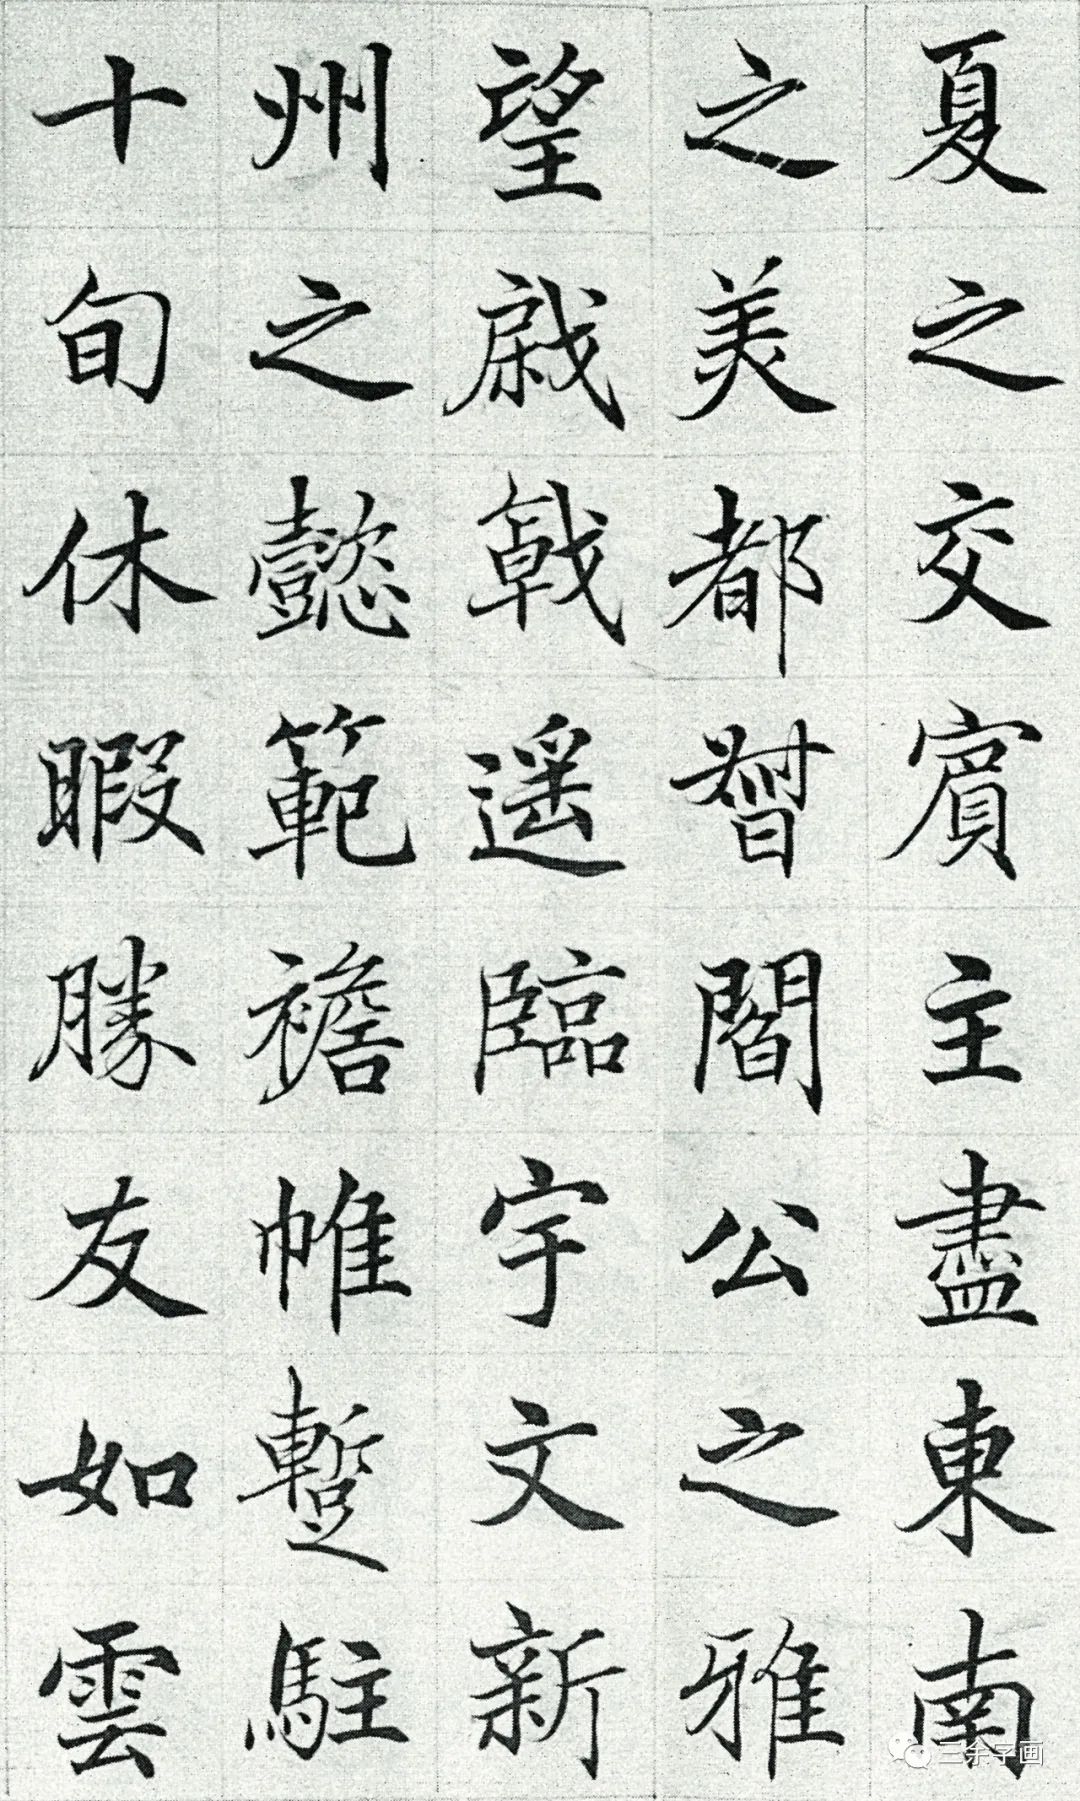 夏之交賓主盡東南
之美都督閻公之雅
望戚戟遥臨宇文新
州之懿範襜帷蹔駐
十旬休暇勝友如雲
三余字画